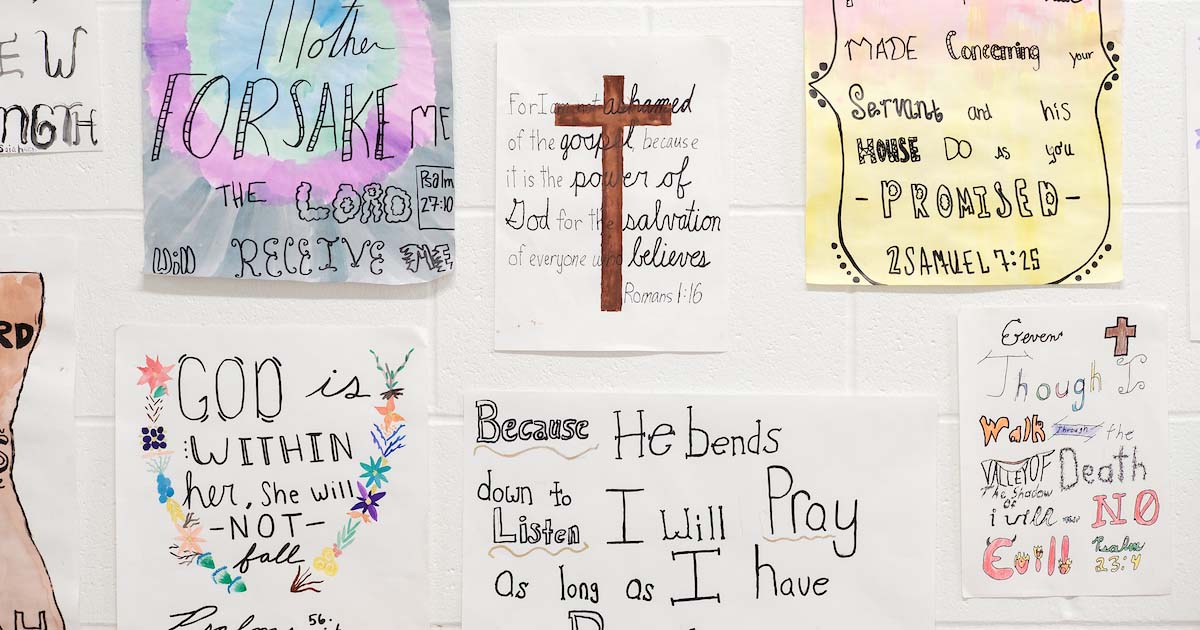 E W
NGTH
Mother
FORSAKE ME
THE LORD
Psalm
27:10
Will RECEIVE ME
For I am not ashamed
of the gospel, because
it is the power of
God for the salvation
of everyone who believes
Romans 1:16
MADE Concerning your
Servant and his
HOUSE DO as you
- PROMISED -
2 SAMUEL 7:25
RD
GOD is
WITHIN
her, She will
- NOT -
fall
Because He bends
down to
Listen I Will Pray
As long as I have
Even
Though I
Walk Through the
VALLEY OF Death
The Shadow
Of
i will NO
Evil
Psalm
23:4